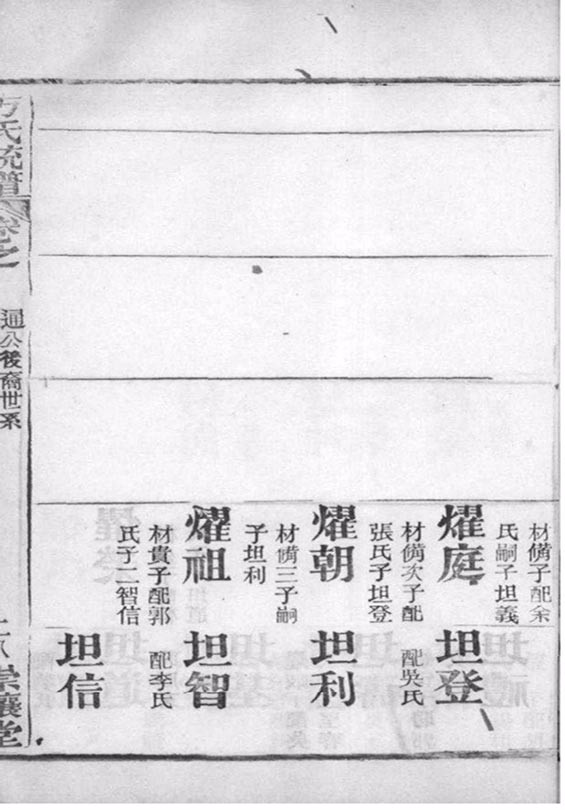 材備子配余
氏嗣子坦義
耀庭
材備次子配
張氏子坦登
耀朝
材備三子嗣
子坦利
耀祖
材貴子配郭
氏子二智信
坦登
配吳氏
坦利
坦智
配李氏
坦信
方氏統譜
卷之
通公後裔世系
崇讓堂